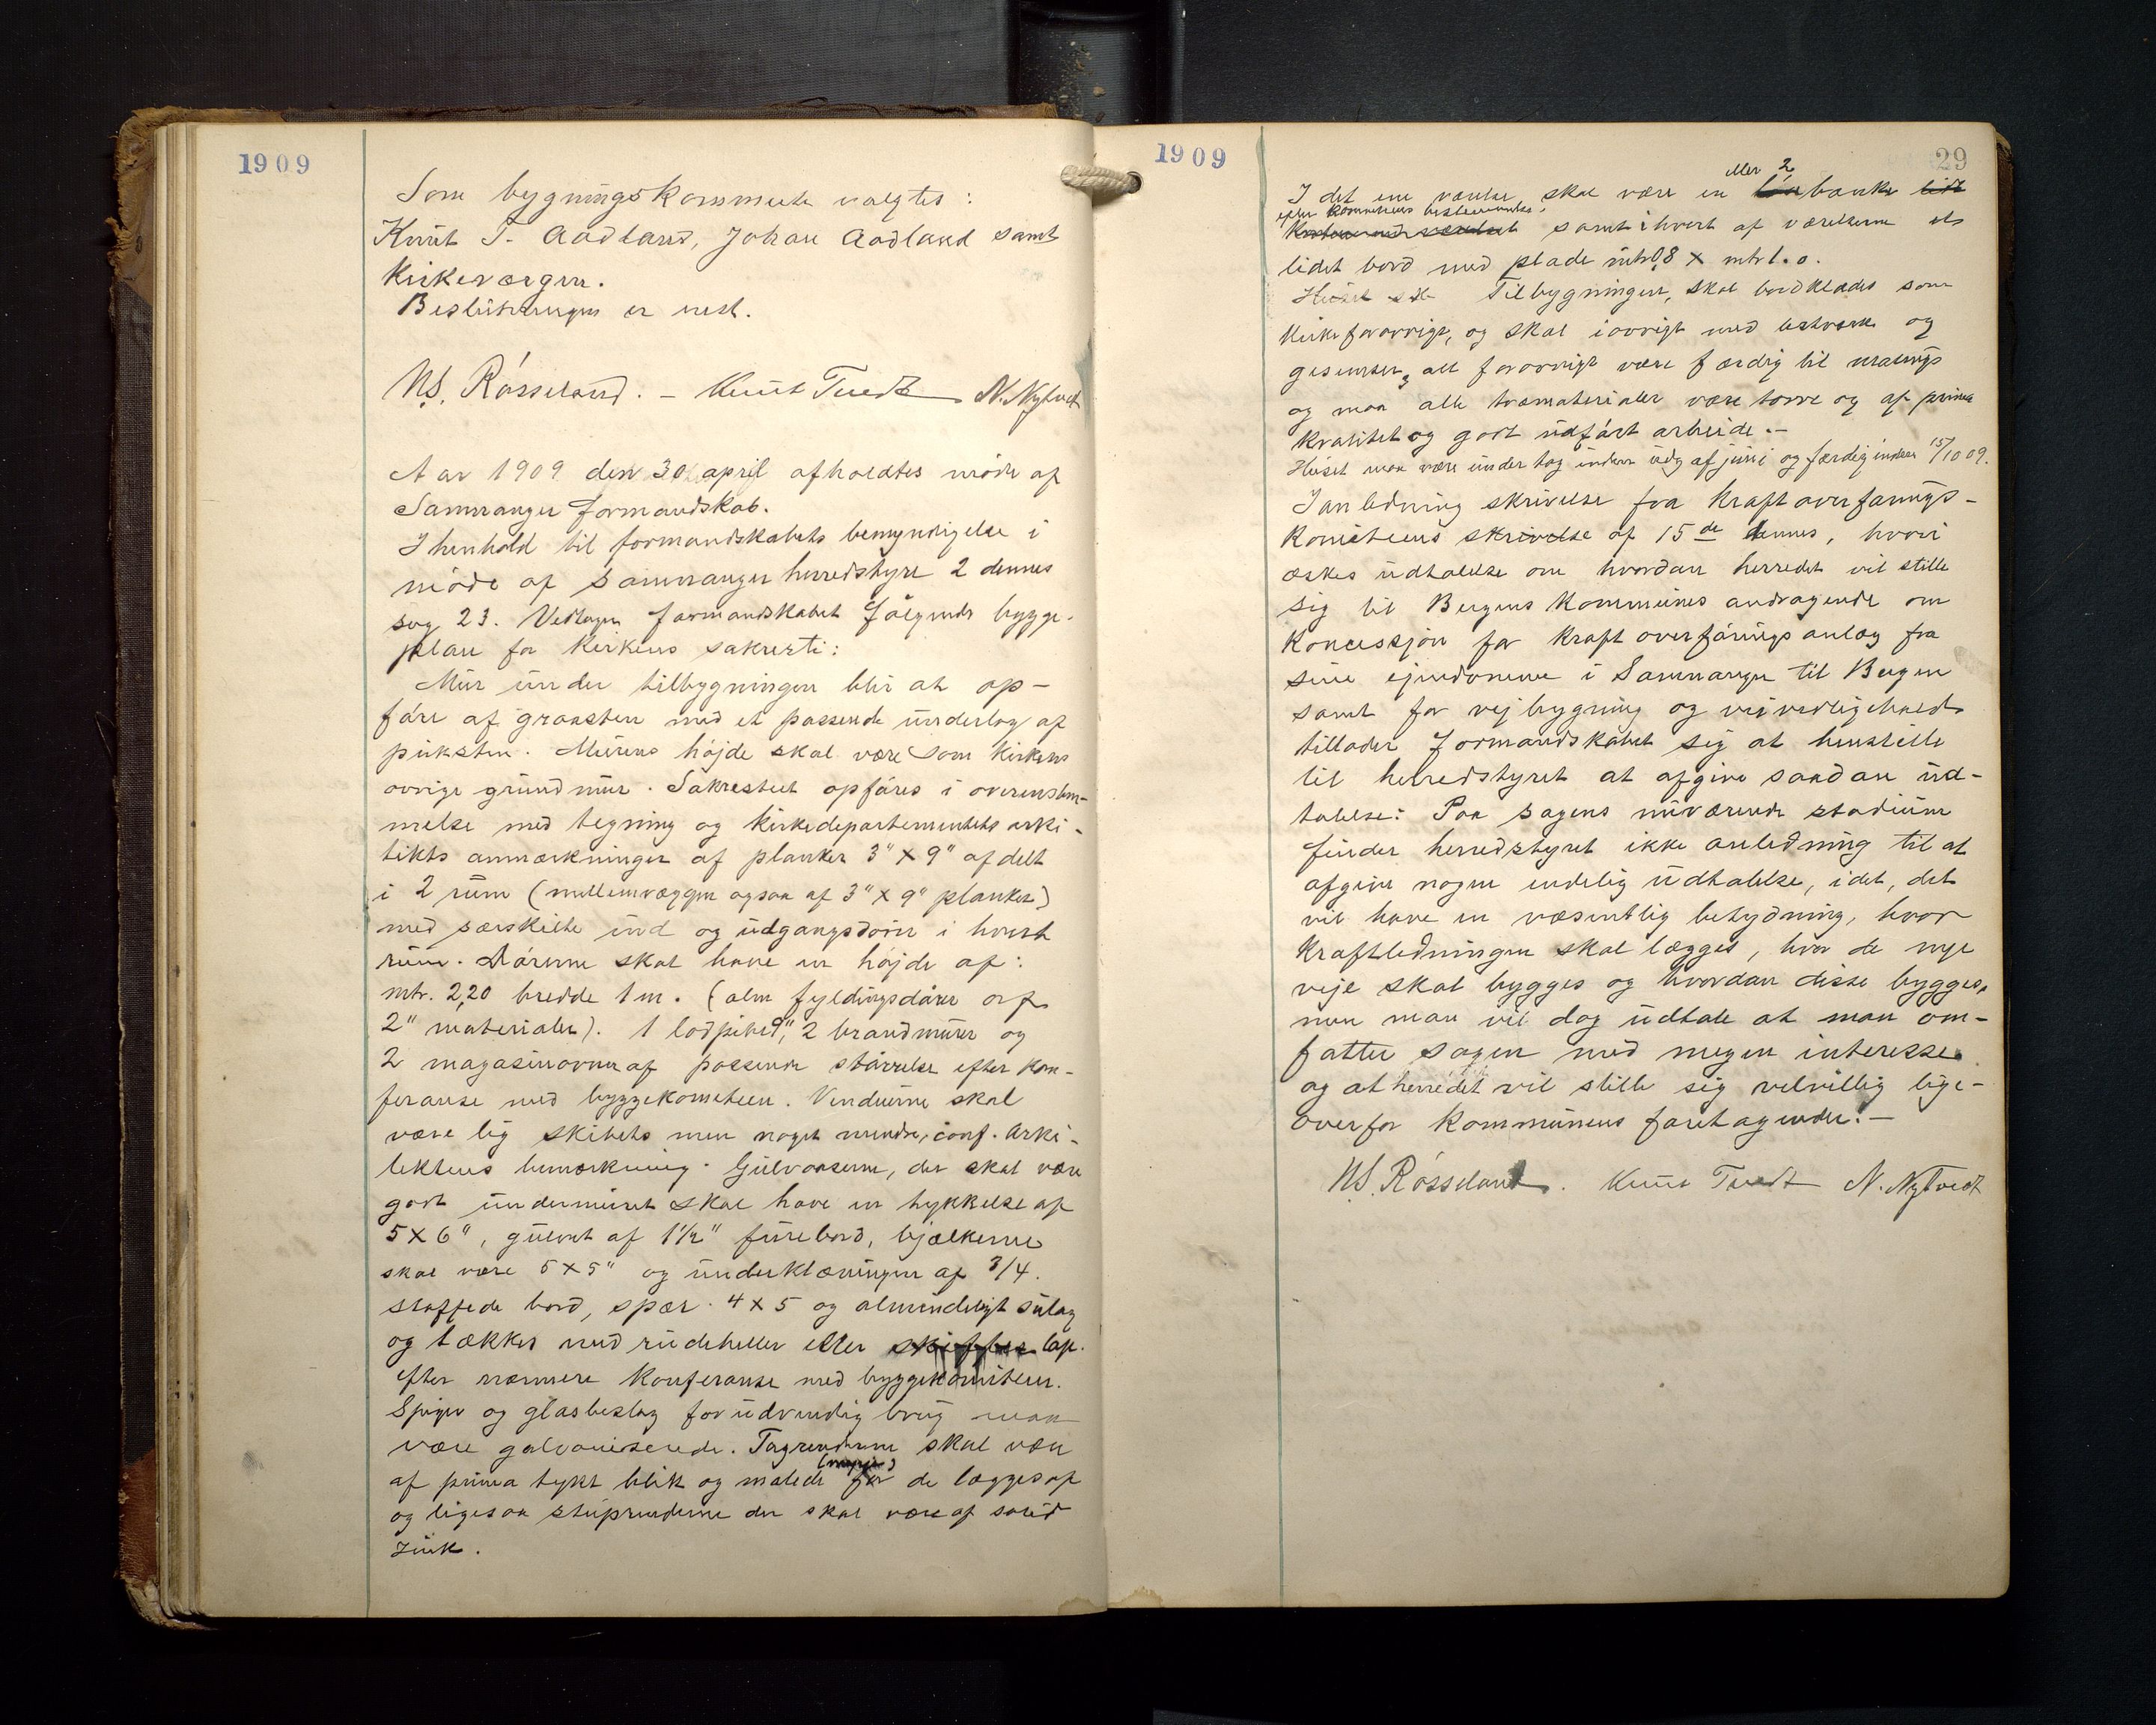 1909
Som bygningskommite valgtes:
Knut T. Aadland, Johan Aadland samt
Kirkeværgen.
Beslutningen er enst.
N.S. Rösseland. - Knut Tvedt N. Nytvedt
Aar 1909 den 30 april afholdtes möde af
Samnanger formandskab.
I henhold til formandskabets bemyndigelse i
möde af Samnanger herredstyre 2 dennes
sag 23. Vedtager formandskabet fölgende bygge-
plan for Kirkens sakresti:
Mur under tilbygningen blir at op-
före af graasten med et passende underlag af
puksten. Murens höjde skal være som Kirkens
övrige grundmur. Sakrestiet opföres i overenstem-
melse med tegning og Kirkedepartementets arki-
tekts anmærkninger af planker 3" x 9" afdelt
i 2 rum (mellemvæggen ogsaa af 3" x 9" planker)
med særskilte ind og udgangsdörer i hvert
rum. Dörerne skal have en höjde af:
mtr. 2,20 bredde 1 m. (alm fyldingsdörer af
2" materialer). 1 lodpibe 9", 2 brandmurer og
2 magasinovner af passende störrelse efter kon-
feranse med byggekomiteen. Vinduerne skal
være lig skibets men noget mindre, conf. Arki-
tektens bemærkning. Gulvaaserne, der skal være
godt undermuret skal have en tykkelse af
5 x 6", gulvet af 1½" furebord, bjælkerne
skal være 5 x 5" og underklæningen af 3/4.
staffede bord, spær 4 x 5 og almindeligt sulag
og tækkes med rudeheller eller skiffer lap.
efter nærmere Konferanse med byggekomiteen.
Spiger og glasbeslag for udvendig brug maa
være galvaniserede. Tagrenderne skal være
af prima tykt blik og malede for de lægges op
og ligesaa stuprenderne der skal være af solid
Zink.
1909
29
eller 2
I det ene værelse skal være en bænke
efter Komiteens bestemmelse,
samt i hvert af værelserne et
lidet bord med plade mtr 0,8 x mtr 1.0.
Huset s Tilbygningen, skal bordklædes som
Kirke forövrigt, og skal iövrigt med listverk og
gesimser, alt forövrigt være færdig til malings
og maa alle træmaterialer være törre og af prima
Kvalitet og godt udfört arbeide.-
Huset maa være under tag inden udg af juni og færdig inden 15/10 09.
I anledning skrivelse fra Kraftoverförings-
komiteens skrivelse af 15de dennes, hvori
æskes udtalelse om hvordan herredet vil stille
sig til Bergens Kommunes andragende om
Koncessjon for Kraftoverföringsanlæg fra
sine ejendomme i Samnanger til Bergen
samt for vejbygning og veivedligehold
tillader formandskabet sig at henstille
til herredstyret at afgive saadan ud-
talelse: Paa sagens nuværende stadium
finder herredstyret ikke anledning til at
afgive nogen endelig udtalelse, idet, det
vil have en væsentlig betydning, hvor
Kraftledningen skal lægges, hvor de nye
veje skal bygges og hvordan disse bygges,
men man vil dog udtale at man om-
fatter sagen med megen interesse
og at herredet vil stille sig velvillig lige-
overfor Kommunens foretagender.-
N.S. Rösseland. Knut Tvedt N. Nytvedt